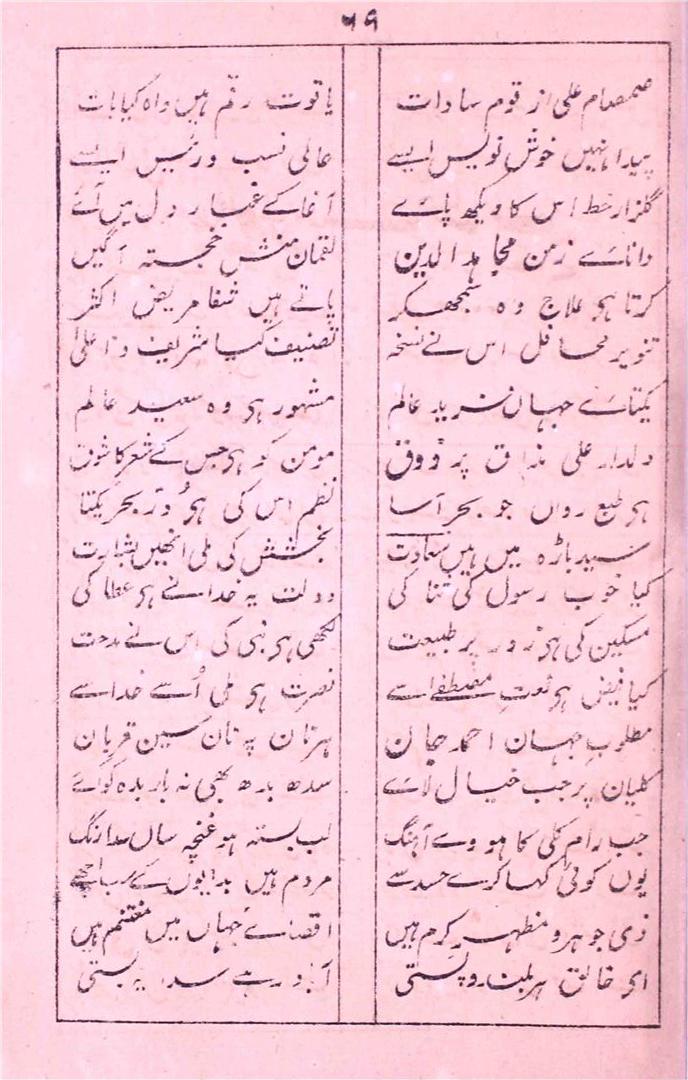 ۵۹
صمصام علی از قوم سادات یاقوت رقم ہیں واہ کیا بات
پیدا نہیں خوش نویس ایسے عالی نسب و رئیس ایسے
گلزار خط اس کا دیکھ پائے آغا کے غبار دل میں آئے
دانائے زمن مجاہد الدین لقمان منش خجستہ آگیں
کرتا ہی علاج وہ سمجھکر پاتے ہیں شفا مریض اکثر
تنویر محافل اس نے نسخہ تصنیف کیا شریف و اعلیٰ
یکتائے جہاں فرید عالم مشہور ہی وہ سعید عالم
دلدار علی مذاق پر ذوق مومن کو ہی جس کے شعر کا شوق
ہی طبع رواں جو بحر آسا نظم اس کی ہی دُرّ بحر یکتا
سید باڑہ میں ہیں سعادت بخشش کی ملی انھیں بشارت
کیا خوب رسول کی ثنا کی دولت یہ خدا نے ہی عطا کی
مسکین کی ہی زور پر طبیعت لکھی ہی نبی کی اس نے مدحت
کیا فیض ہی نعتِ مصطفےٰ سے نصرت ہی ملی اُسے خدا سے
مطلوب جہان احمد جان ہر تان پہ تان سین قربان
کلیان پر جب خیال لائے سدھ بدھ بھی نہ باربد کو آئے
جب رام کلی کا ہووے آہنگ لب بستہ ہو غنچہ ساں سدا رنگ
یوں کوئی کہا کرے حسد سے مردم ہیں بدایوں کے سب اچھے
ذی جوہر و مظہر کرم ہیں اقصائے جہاں میں مغتنم ہیں
ای خالق ہر بلند و پستی آباد رہے سدا یہ بستی